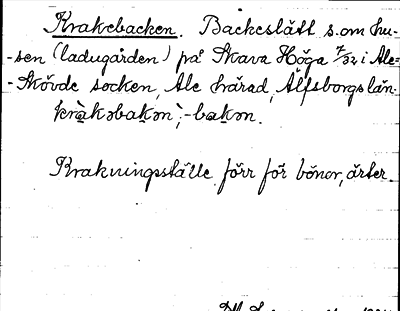 Krakebacken. Backeslätt s.om hu-
-sen (ladugården) på Skara Höga 7/32 i Ale-
-Skövde socken, Ale härad, Älfsborgs län.
kràkəbakən, -bakən.
Krakningsställe förr för bönor, ärter